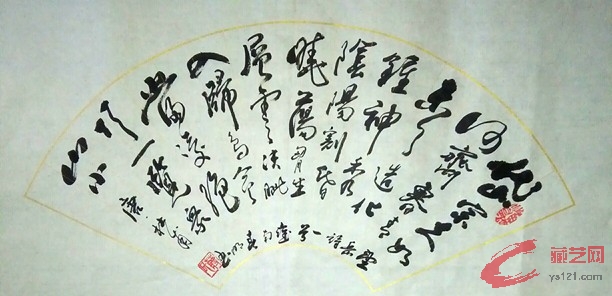 岱宗夫如
何齊魯青
未了造化
鍾神秀
陰陽割昏
曉蕩胸生
層雲決眦
入歸鳥會
當凌絕
頂一覽衆
山小
唐杜甫
望岳詩一首
藏艺网
ys121.com